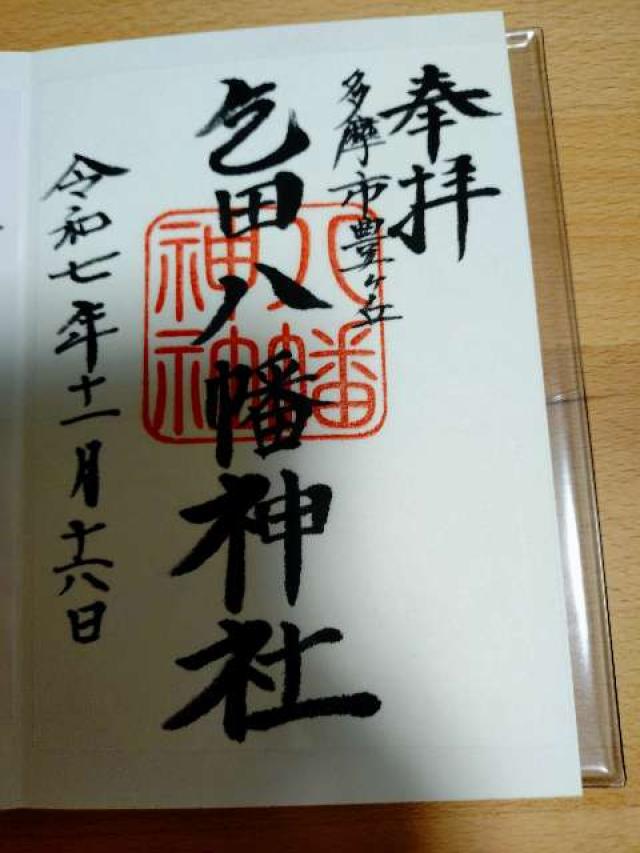 奉拝
多摩市豊ヶ丘
乞田八幡神社
八幡
神社
令和七年十一月十六日